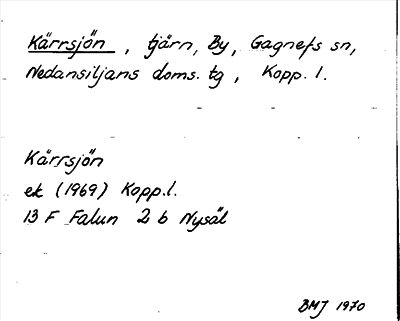 Kärrsjön, tjärn, By, Gagnefs sn,
Nedansiljans doms. tg, Kopp. l.
Kärrsjön
ek (1969) Kopp. l.
13 F Falun 2 b Nysäl
BMJ 1970